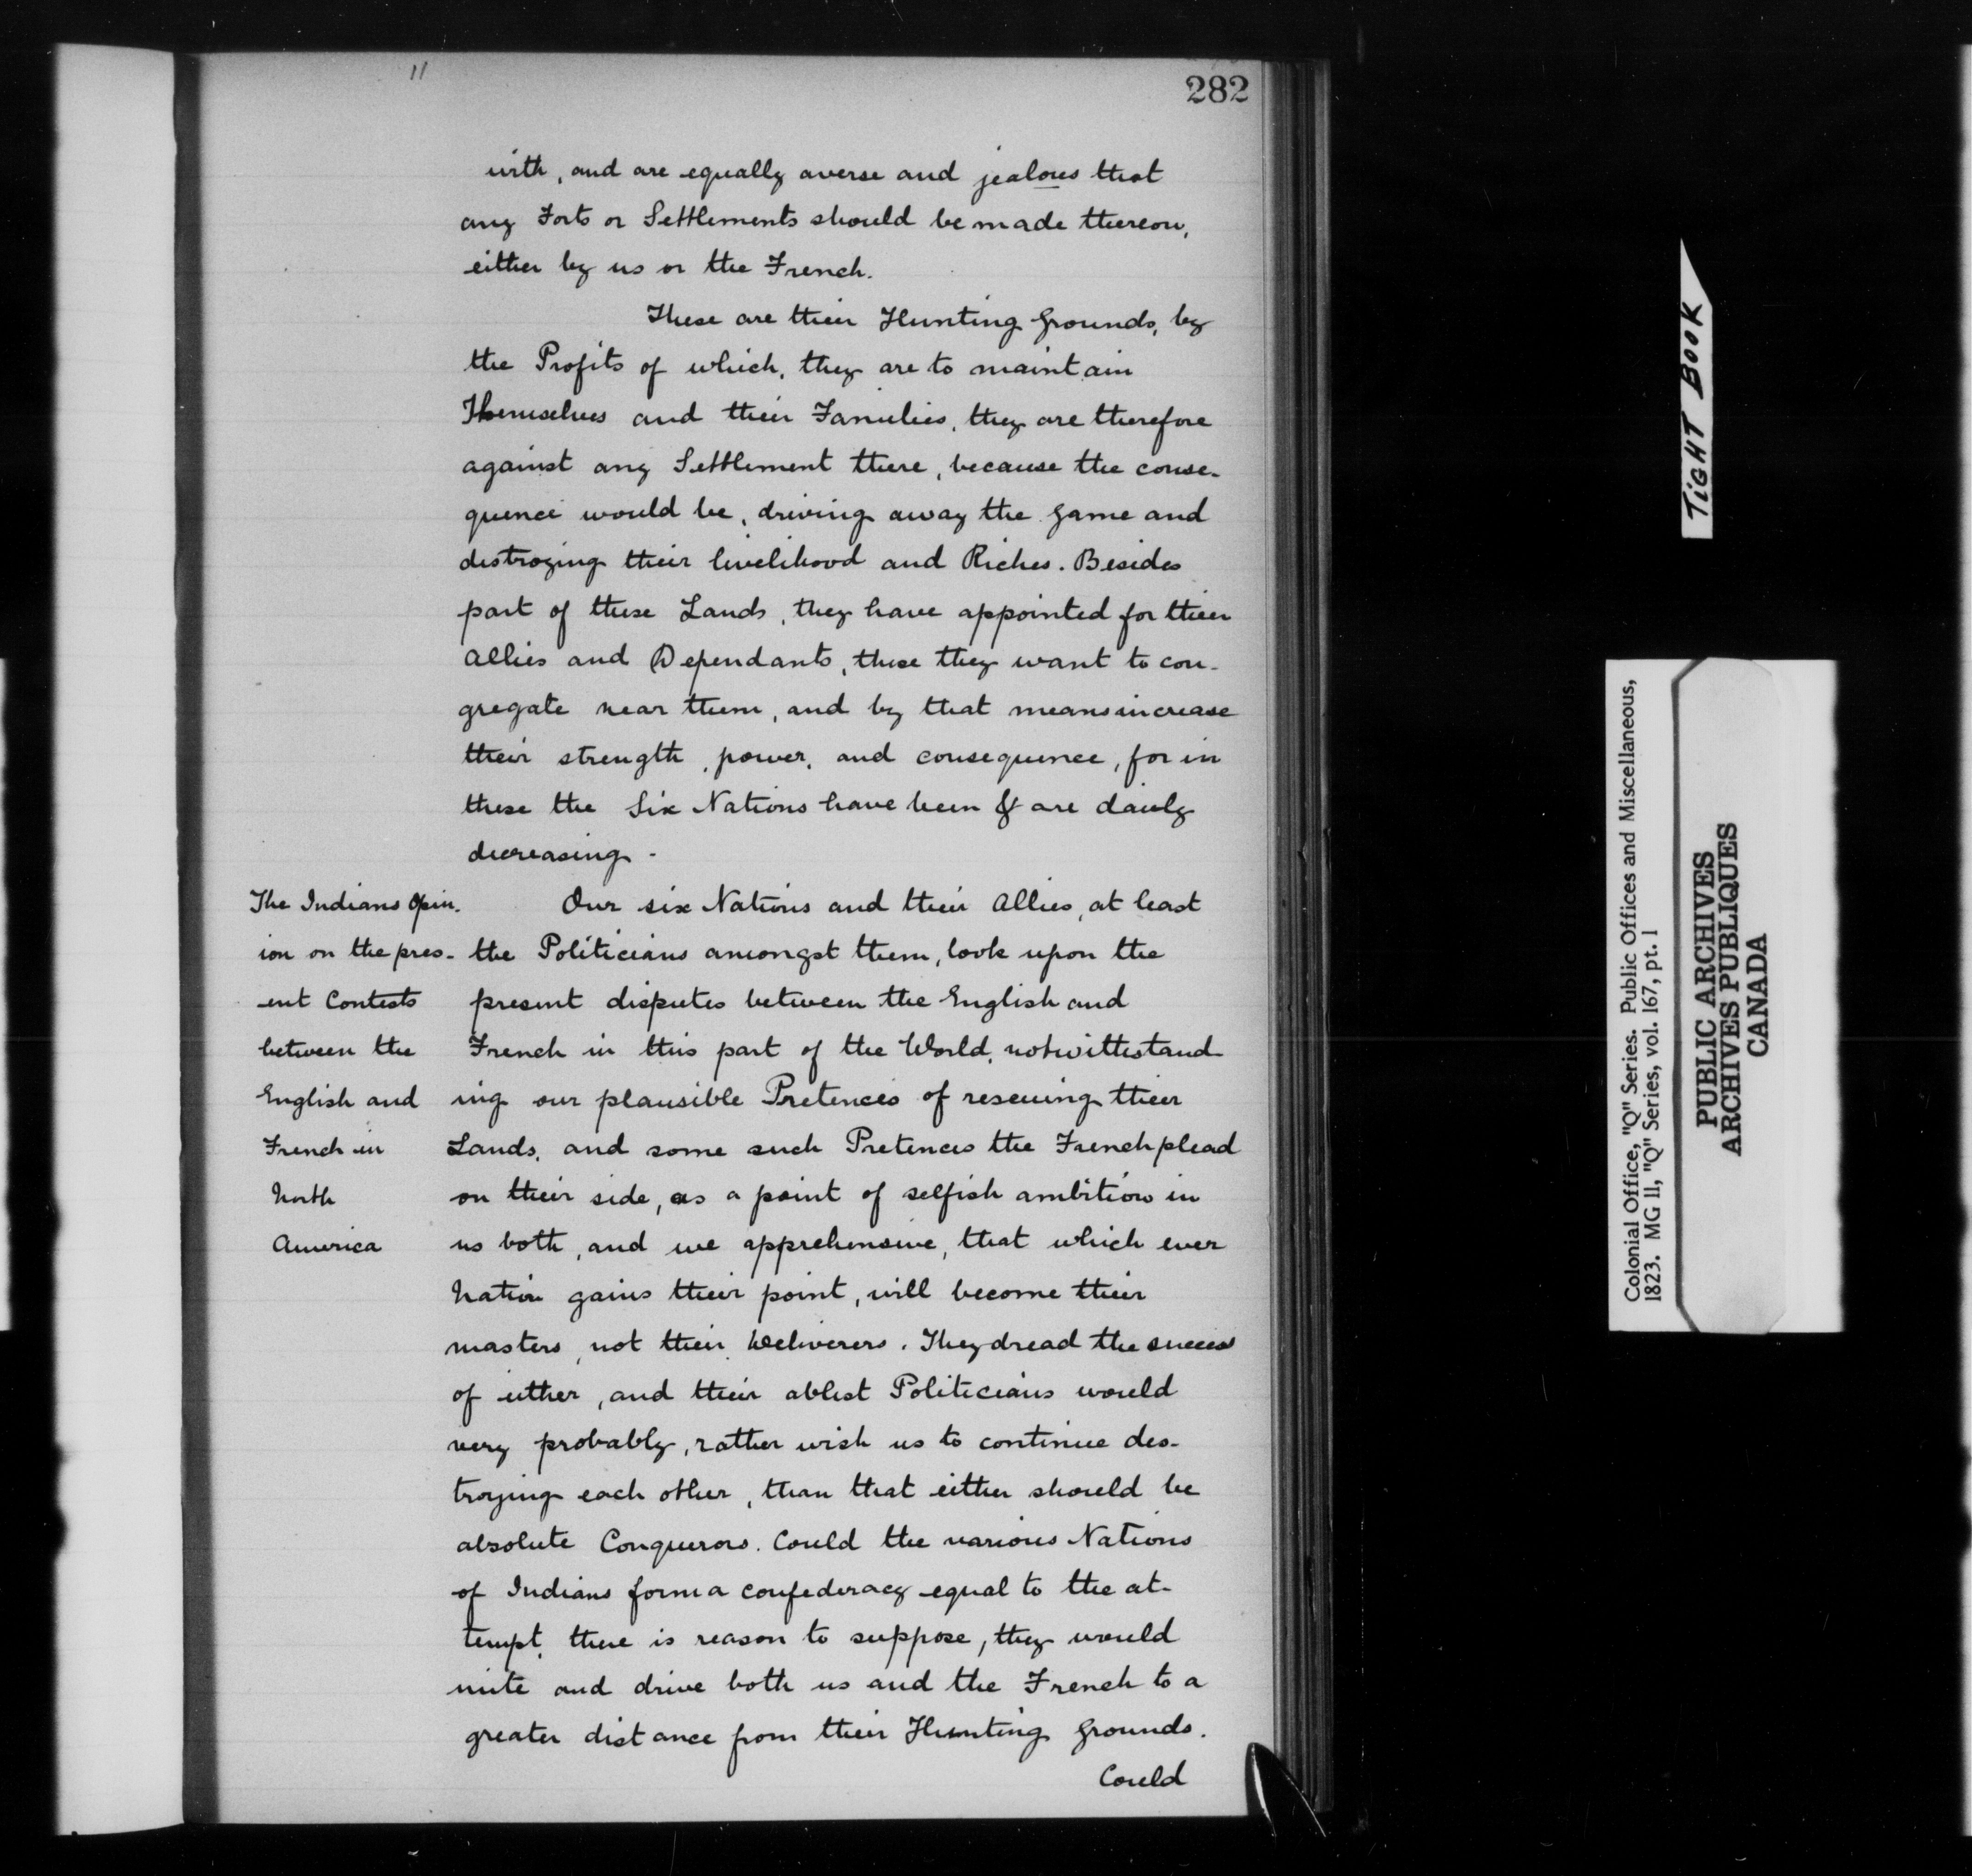 11
282
with, and are equally averse and jealous that
any Forts or Settlements should be made thereon,
either by us or the French.
These are their Hunting Grounds, by
the Profits of which, they are to maintain
Themselves and their Families, they are therefore
against any Settlement there, because the conse-
quence would be, driving away the game and
distroying their livelihood and Riches. Besides
part of these Lands, they have appointed for their
allies and Dependants, these they want to con-
gregate near them, and by that means increase
their strength, power, and consequence, for in
these the Six Nations have been & are daily
decreasing -
The Indians Opin-
ion on the pres-
ent Contests
between the
English and
French in
North
America
Our six Nations and their allies, at least
the Politicians amongst them, look upon the
present disputes between the English and
French in this part of the World, notwithstand-
ing our plausible Pretences of rescuing their
Lands, and some such Pretences the French plead
on their side, as a point of selfish ambition in
us both, and we apprehensive, that which ever
Nation gains their point, will become their
masters, not their Deliverers. They dread the success
of either, and their ablest Politicians would
very probably, rather wish us to continue des-
troying each other, than that either should be
absolute Conquerors. Could the various Nations
of Indians form a confederacy equal to the at-
tempt, there is reason to suppose, they would
unite and drive both us and the French to a
greater distance from their Hunting Grounds.
Could
TIGHT BOOK
Colonial Office, "Q" Series. Public Offices and Miscellaneous,
1823. MG 11, "Q" Series, vol. 167, pt. 1
PUBLIC ARCHIVES
ARCHIVES PUBLIQUES
CANADA